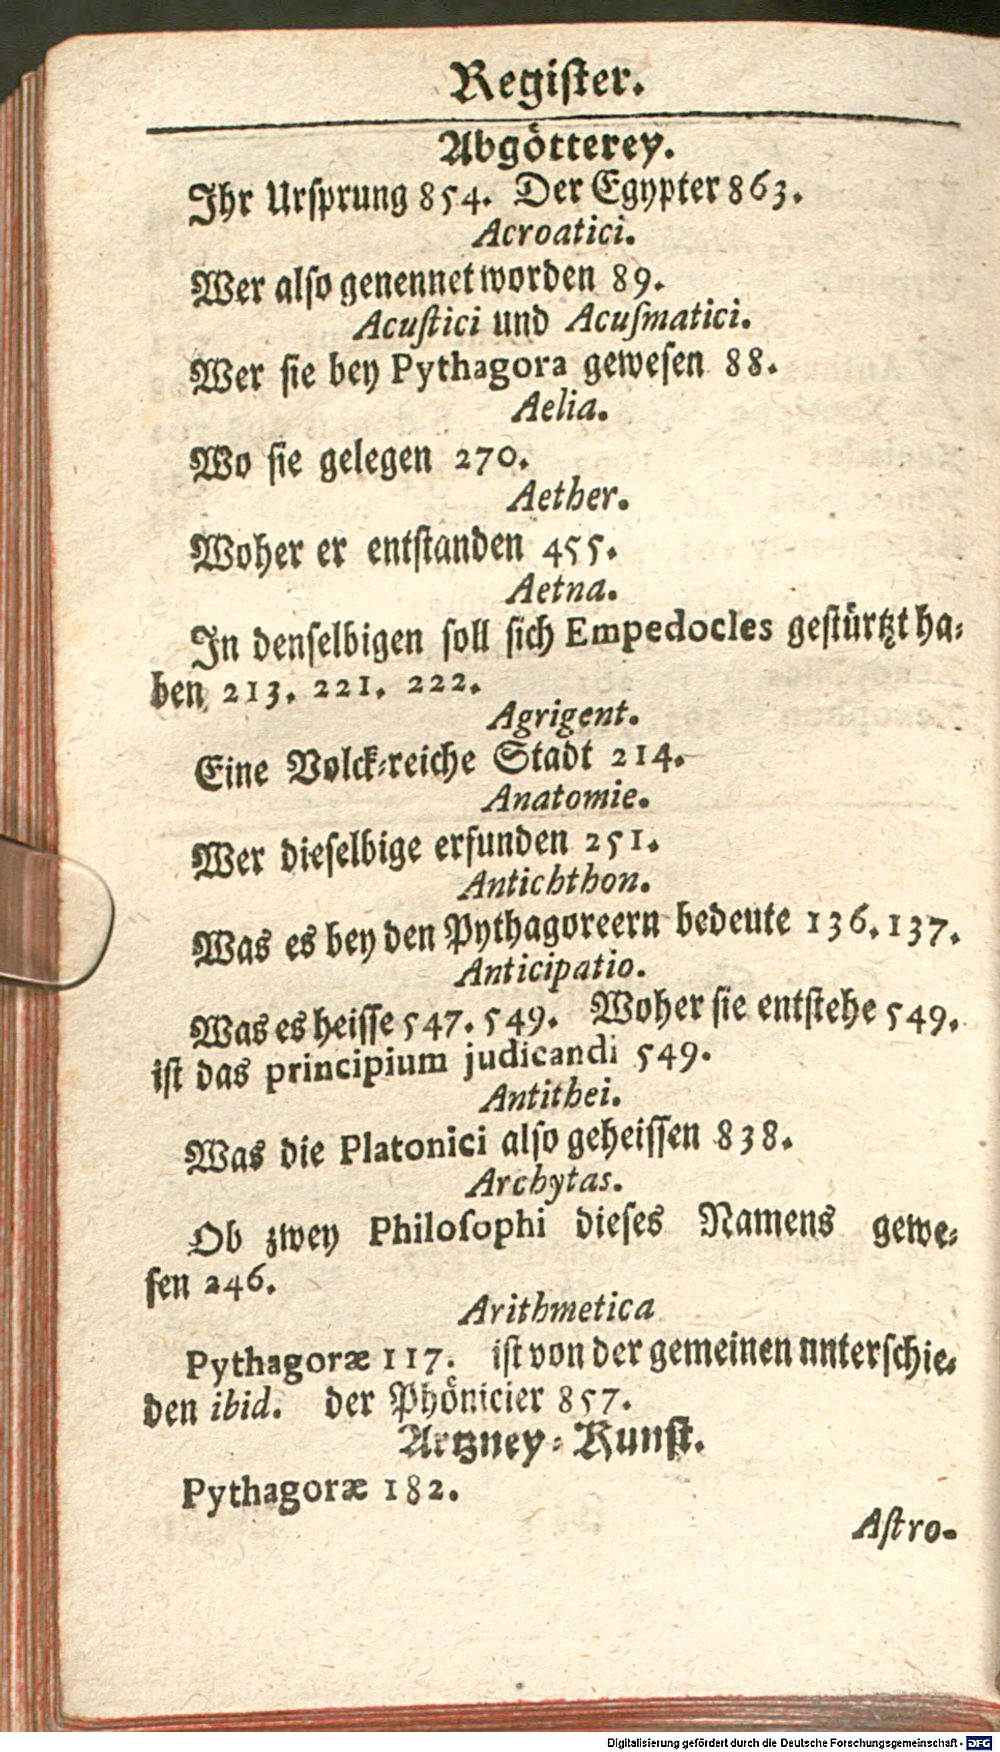 Regiſter.
Abgötterey.
Ihr Urſprung 854. Der Egypter 863.
Acroatici.
Wer alſo genennet worden 89.
Acuſtici und Acuſmatici.
Wer ſie bey Pythagora geweſen 88.
Aelia.
Wo ſie gelegen 270.
Aether.
Woher er entſtanden 455.
Aetna.
In denſelbigen ſoll ſich Empedocles geſtürtzt ha-
ben 213. 221. 222.
Agrigent.
Eine Volck-reiche Stadt 214.
Anatomie.
Wer dieſelbige erfunden 251.
Antichthon.
Was es bey den Pythagoreern bedeute 136. 137.
Anticipatio.
Was es heiſſe 547. 549. Woher ſie entſtehe 549.
iſt das principium judicandi 549.
Antithei.
Was die Platonici alſo geheiſſen 838.
Archytas.
Ob zwey Philoſophi dieſes Namens gewe-
ſen 246.
Arithmetica
Pythagoræ 117. iſt von der gemeinen nnterſchie-
den ibid. der Phönicier 857.
Artzney-Kunſt.
Pythagoræ 182.
Aſtro-
Digitalisierung gefördert durch die Deutsche Forschungsgemeinschaft - DFG